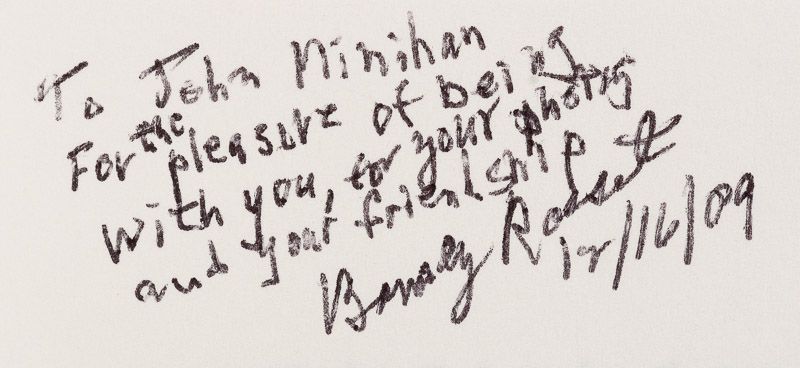 To John Minihan
For the pleasure of being
with you, for your photos
and your friendship
Barney Rosset
12/16/09